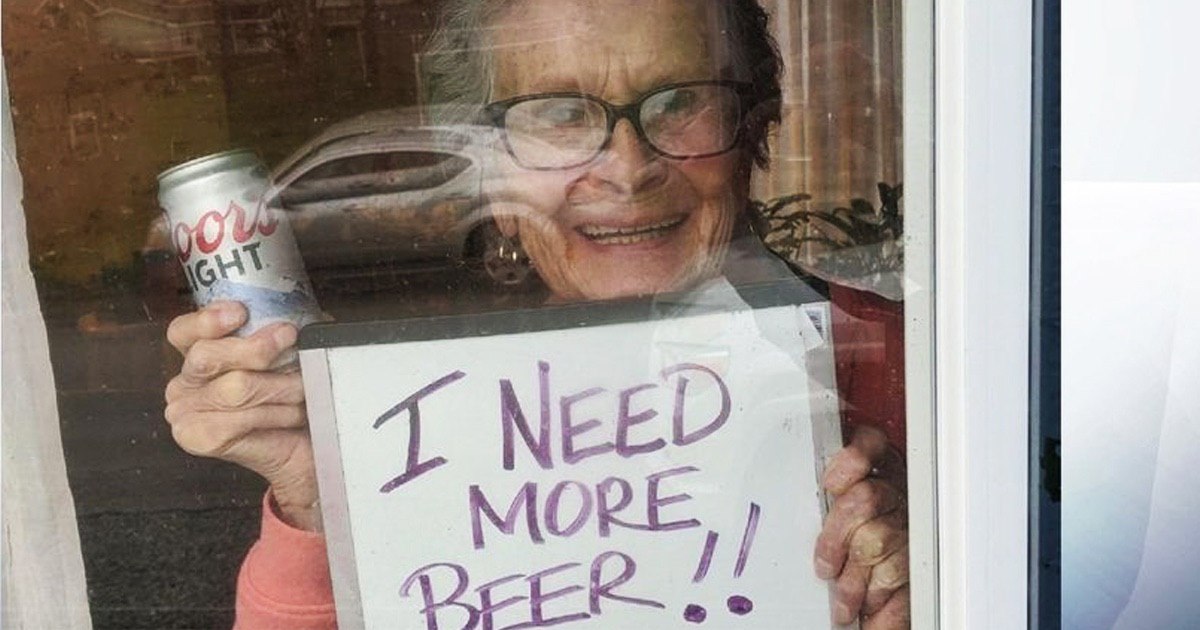 Coors
LIGHT
I NEED
MORE
BEER!!